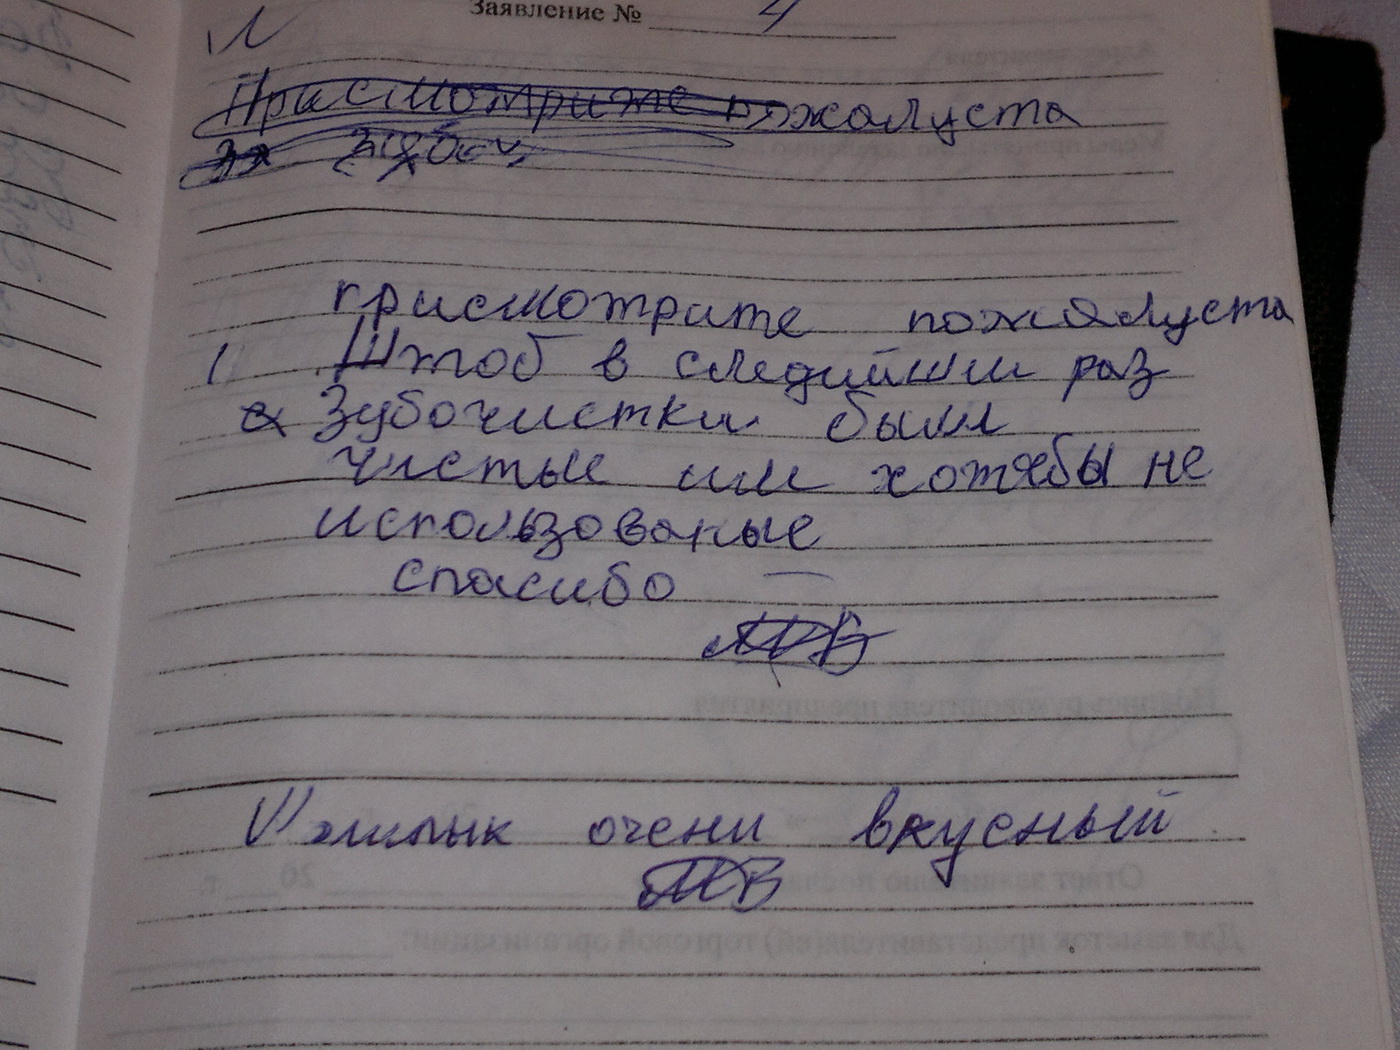 Заявление № 4
Присмотрите пожалуста
присмотрите пожалуста
Штоб в следийший раз
Зубочистки были
чистые или хотябы не
использованые
спасибо
Шашлык очени вкусный